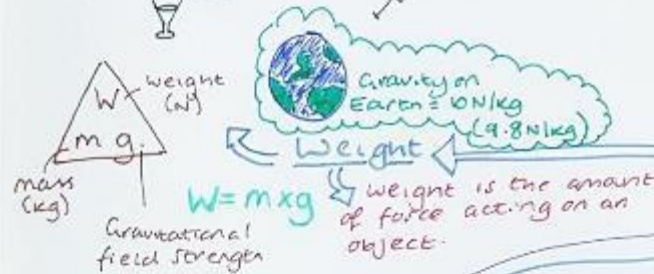 W
weight
(N)
m g
mass
(kg)
Gravitational
field strength
Gravity on
Earth = 10N/kg
(9.8N/kg)
Weight
W = m x g
weight is the amount
of force acting on an
object.